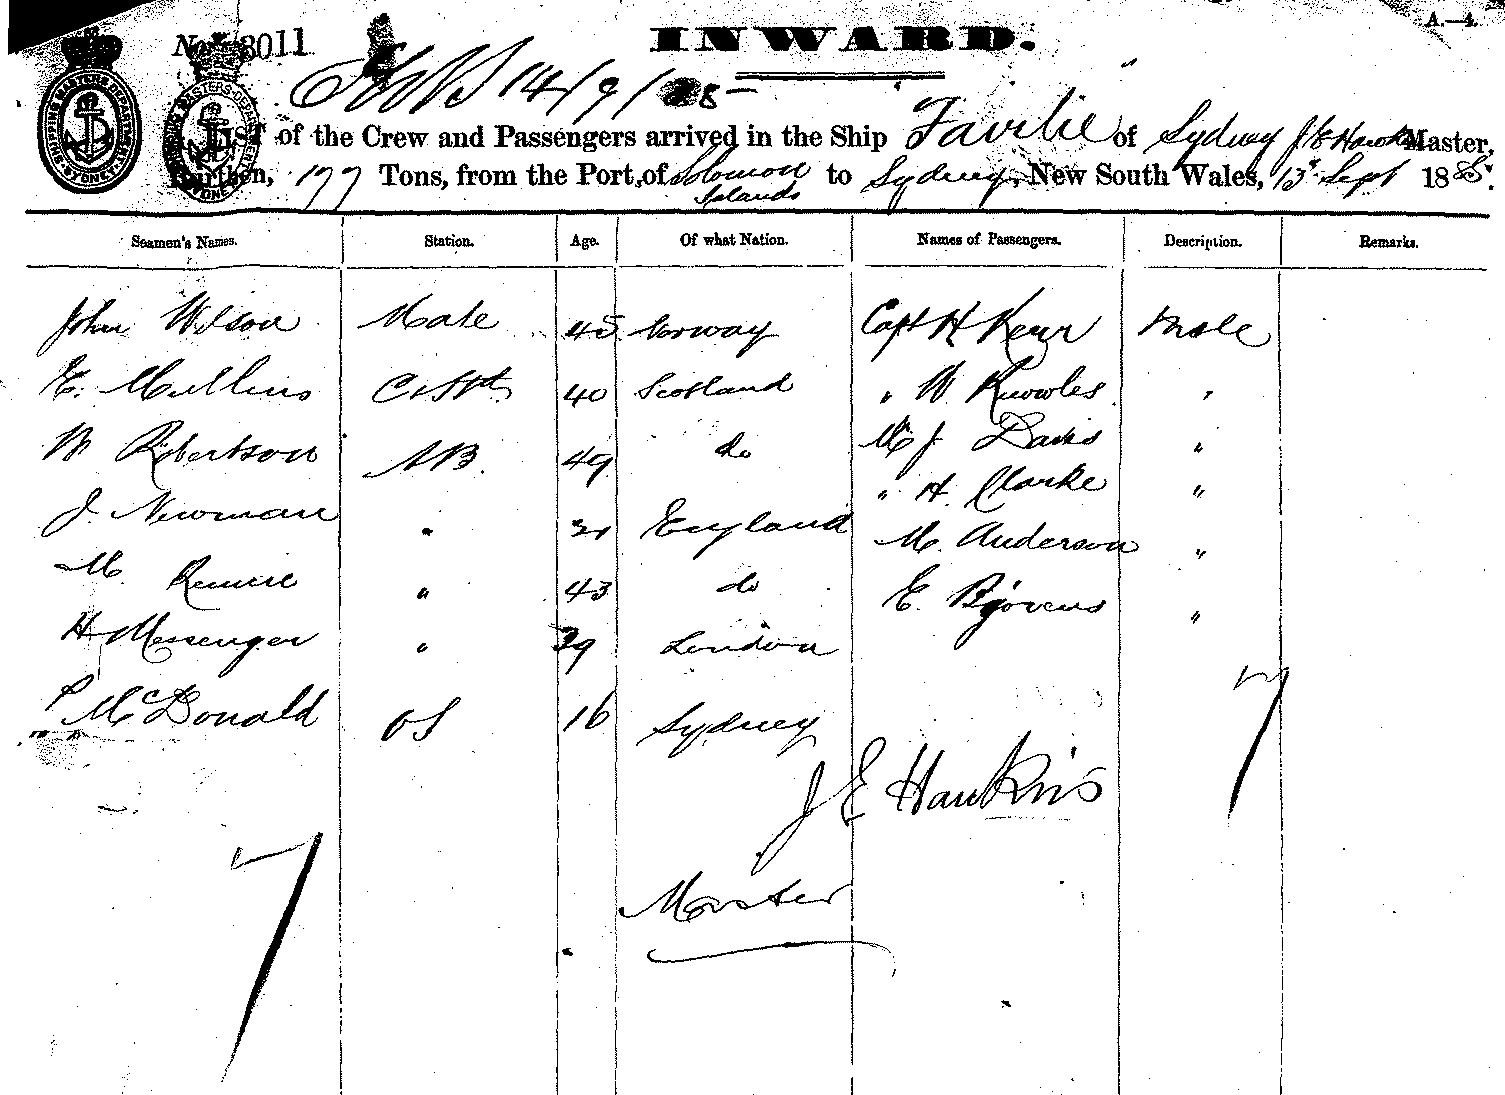 A.—4.
No. 3011
INWARD.
14/9/88
SHIPPING MASTERS DEPARTMENT SYDNEY
LIST of the Crew and Passengers arrived in the Ship Favilie of Sydney J E Hawkins Master,
Burthen, 177 Tons, from the Port of Solomon Islands to Sydney, New South Wales, 13 Sept 188
Seamen's Names. Station. Age. Of what Nation. Names of Passengers. Description. Remarks.
John Wilson Mate 45 Norway Capt H Kerr Male
E. Mullins C & Std 40 Scotland " W Knowles "
W Robertson AB. 49 do Mr J Davis "
J. Newman " England " H. Clarke "
M Rennie " 43 do M. Anderson "
H Messenger " 39 London E. "
P McDonald OS 16 Sydney
7
J E Hawkins
7
Master